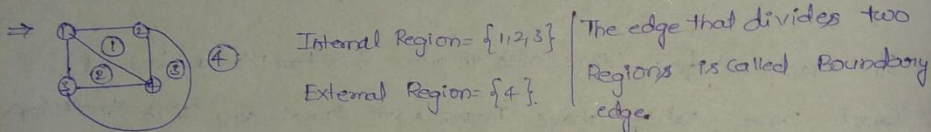 ⇒ ① ② ① ② ③ ④ ④
Internal Region = {1,2,3}
External Region = {4}.
The edge that divides two
Regions is called Boundary
edge.